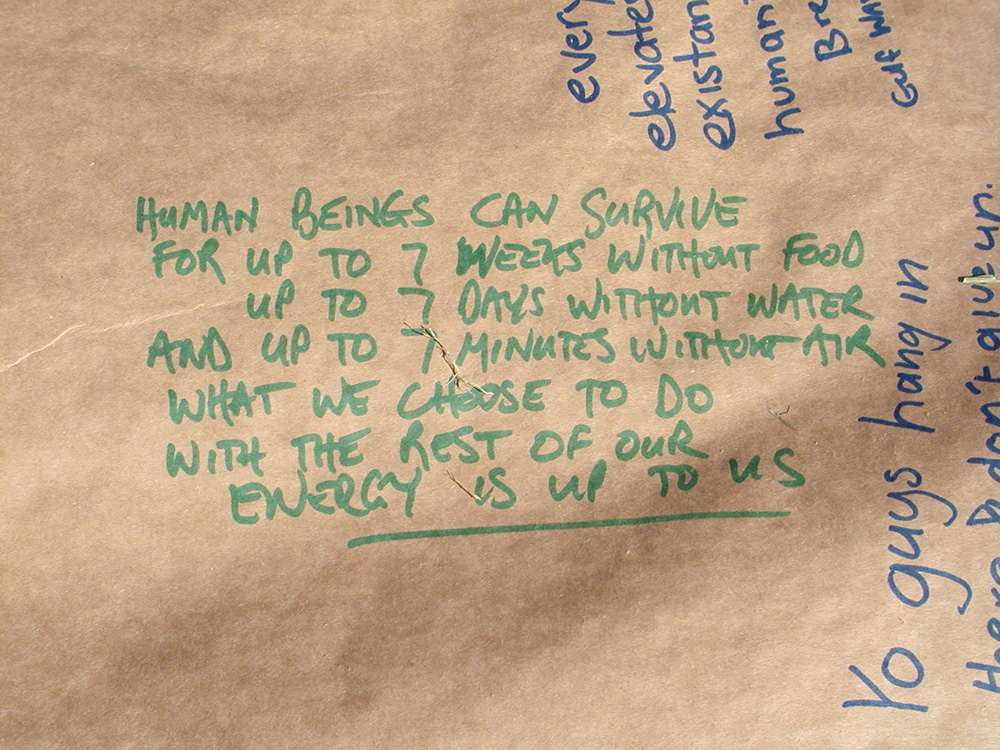 HUMAN BEINGS CAN SURVIVE
FOR UP TO 7 WEEKS WITHOUT FOOD
UP TO 7 DAYS WITHOUT WATER
AND UP TO 7 MINUTES WITHOUT AIR
WHAT WE CHOOSE TO DO
WITH THE REST OF OUR
ENERGY IS UP TO US
every
elevate
existan
human
Bre
Gulf
Yo guys hang in
don't give up.